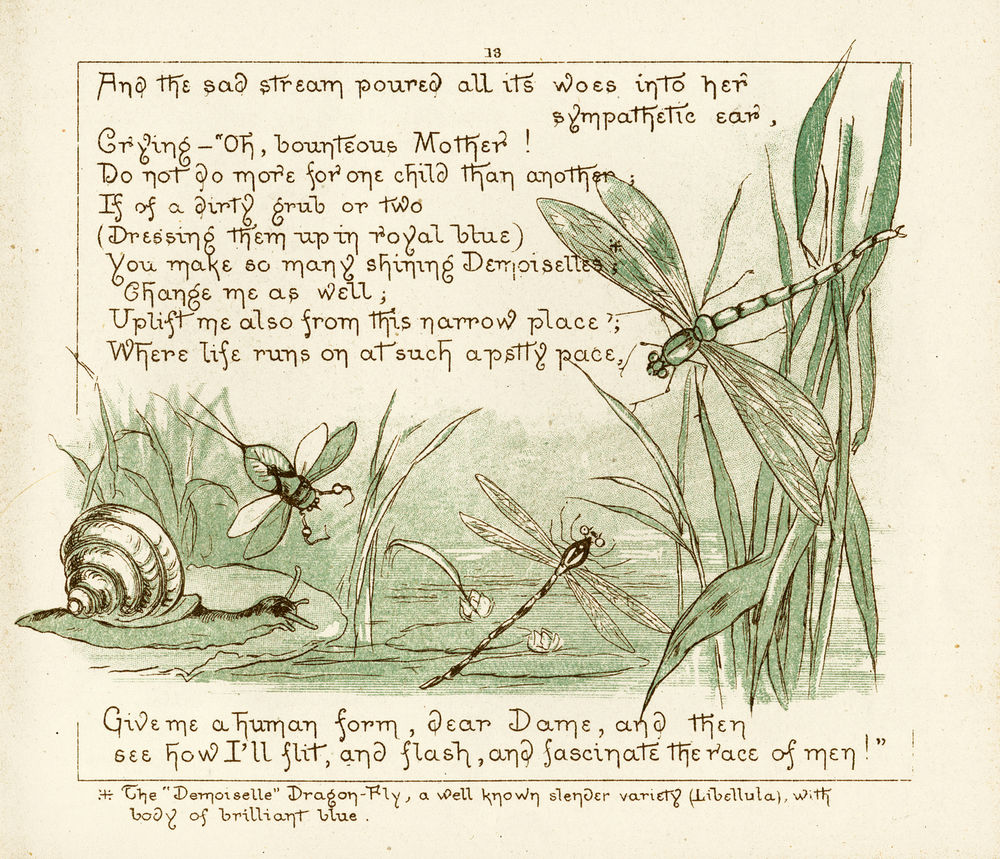 13
And the sad stream poured all its woes into her
sympathetic ear,
Crying—"Oh, bounteous Mother!
Do not do more for one child than another;
If of a dirty grub or two
(Dressing them up in royal blue)
You make so many shining Demoiselles*;
Change me as well;
Uplift me also from this narrow place;
Where life runs on at such a petty pace,
Give me a human form, dear Dame, and then
see how I'll flit, and flash, and fascinate the race of men!"
* The "Demoiselle" Dragon-Fly, a well known slender variety (Libellula), with
body of brilliant blue.